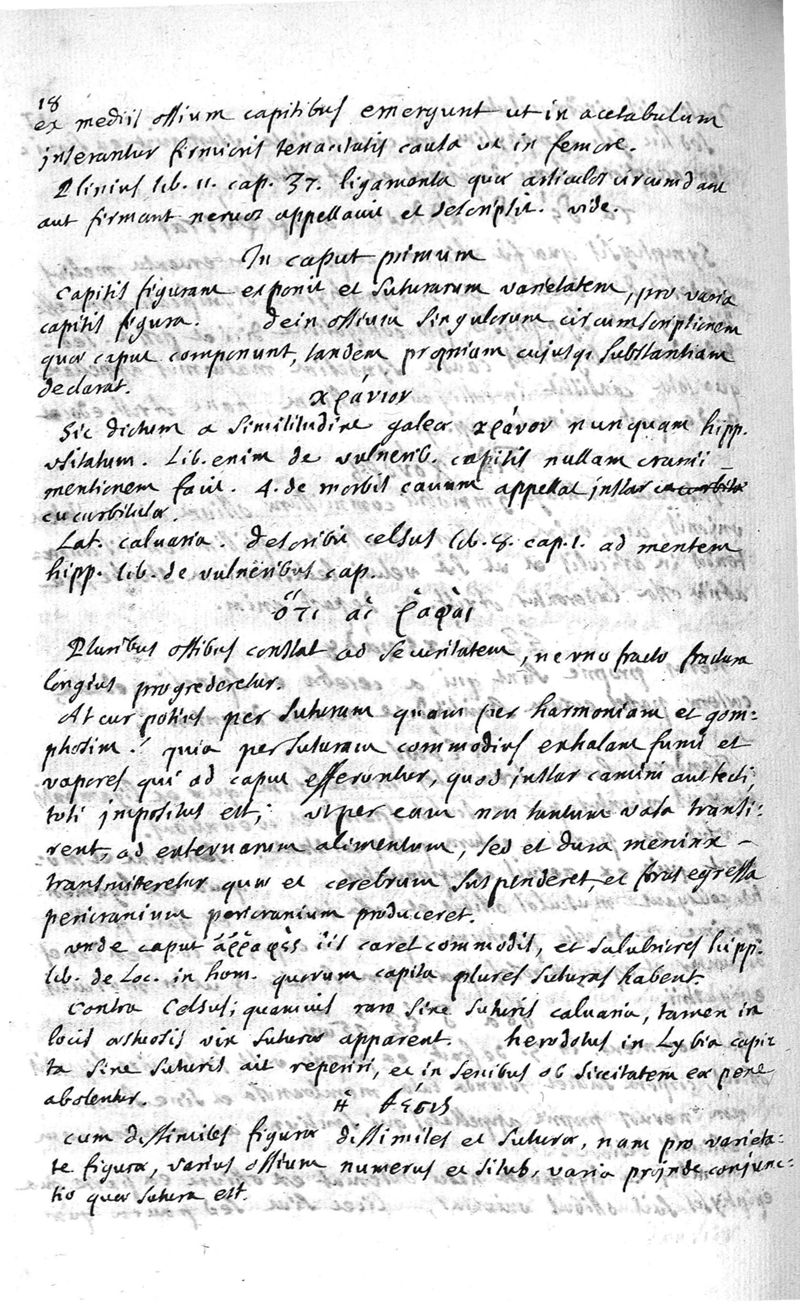 18
ex mediis ossium capitibus emergunt ut in acetabulum
inserantur firmioris tenacitatis causa ut in femore.
Plinius lib. 11. cap. 37. ligamenta quæ articulos circumdant
aut firmant nervos appellavit et descripsit. vide.
In caput primum
Capitis figuram exponit et suturarum varietatem, pro varia
capitis figura. dein ossium singulorum circumscriptionem
quæ caput componunt, tandem propriam cujusq; substantiam
declarat.
κράνιον
Sic dictum a similitudine galeæ κράνον nunquam hipp.
usitatum. Lib. enim de vulnerib. capitis nullam cranii
mentionem facit. 4. de morbis cavum appellat instar cucurbitæ
cucurbitulæ.
Lat. calvaria. describit celsus lib. 8. cap. 1. ad mentem
hipp. lib. de vulneribus cap.
ὅτι αἱ ῥαφαὶ
Pluribus ossibus constat ad securitatem, ne uno fracto fractura
longius progrederetur.
At cur potius per suturam quam per harmoniam et gom:
phosim? quia per suturam commodius exhalant fumi et
vapores qui ad caput efferuntur, quod instar camini aut tecti,
toti impositus est; ut per eam non tantum vasa transi:
rent, ad externarum alimentum, sed et dura meninx
transmitteretur quæ et cerebrum suspenderet, et foras egressa
pericranium pericranium produceret.
unde caput ἀῤῥαφὲς iis caret commodis, et salubriores hipp.
lib. de Loc. in hom. quorum capita plures suturas habent.
Contra Celsus; quamvis raro sine suturis calvaria, tamen in
locis æstuosis vix suturæ apparent. herodotus in Lybia capi:
ta sine suturis ait reperiri, et in senibus ob siccitatem eæ pene
abolentur.
ἡ θέσις
cum dissimiles figuræ dissimiles et suturæ, nam pro varieta:
te figuræ, varius ossium numerus et situs, varia proinde conjunc:
tio quæ sutura est.